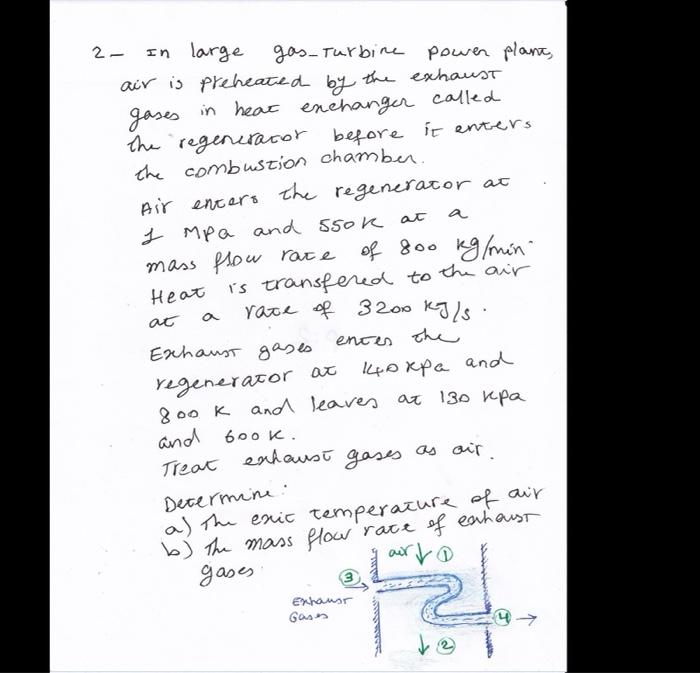 2- In large gas-turbine power plant,
air is preheated by the exhaust
gases in heat exchanger called
the regenerator before it enters
the combustion chamber.
Air enters the regenerator at
1 MPa and 550 K at a
mass flow rate of 800 kg/min.
Heat is transfered to the air
at a rate of 3200 KJ/s.
Exhaust gases enters the
regenerator at 140 kpa and
800 K and leaves at 130 kpa
and 600 K.
Treat exhaust gases as air.
Determine:
a) The exit temperature of air
b) The mass flow rate of exhaust
gases.
air 1
3
Exhaust
Gases
4
2